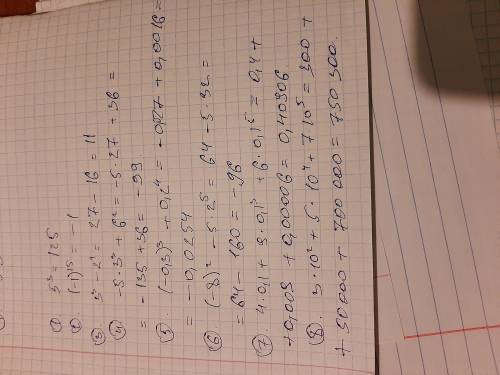 ① 5³ = 125
② (-1)¹⁵ = -1
③ 3³ - 2⁴ = 27 - 16 = 11
④ -5·3³ + 6² = -5·27 + 36 =
= -135 + 36 = -99
⑤. (-0,3)³ + 0,2⁴ = -0,027 + 0,0016 =
= -0,0254
⑥ (-8)² - 5·2⁵ = 64 - 5·32 =
= 64 - 160 = -96
⑦. 4·0,1 + 9·0,1³ + 6·0,1⁵ = 0,4 +
+ 0,009 + 0,00006 = 0,40906
⑧. 3·10² + 5·10⁴ + 7·10⁵ = 300 +
+ 50000 + 700 000 = 750 300.